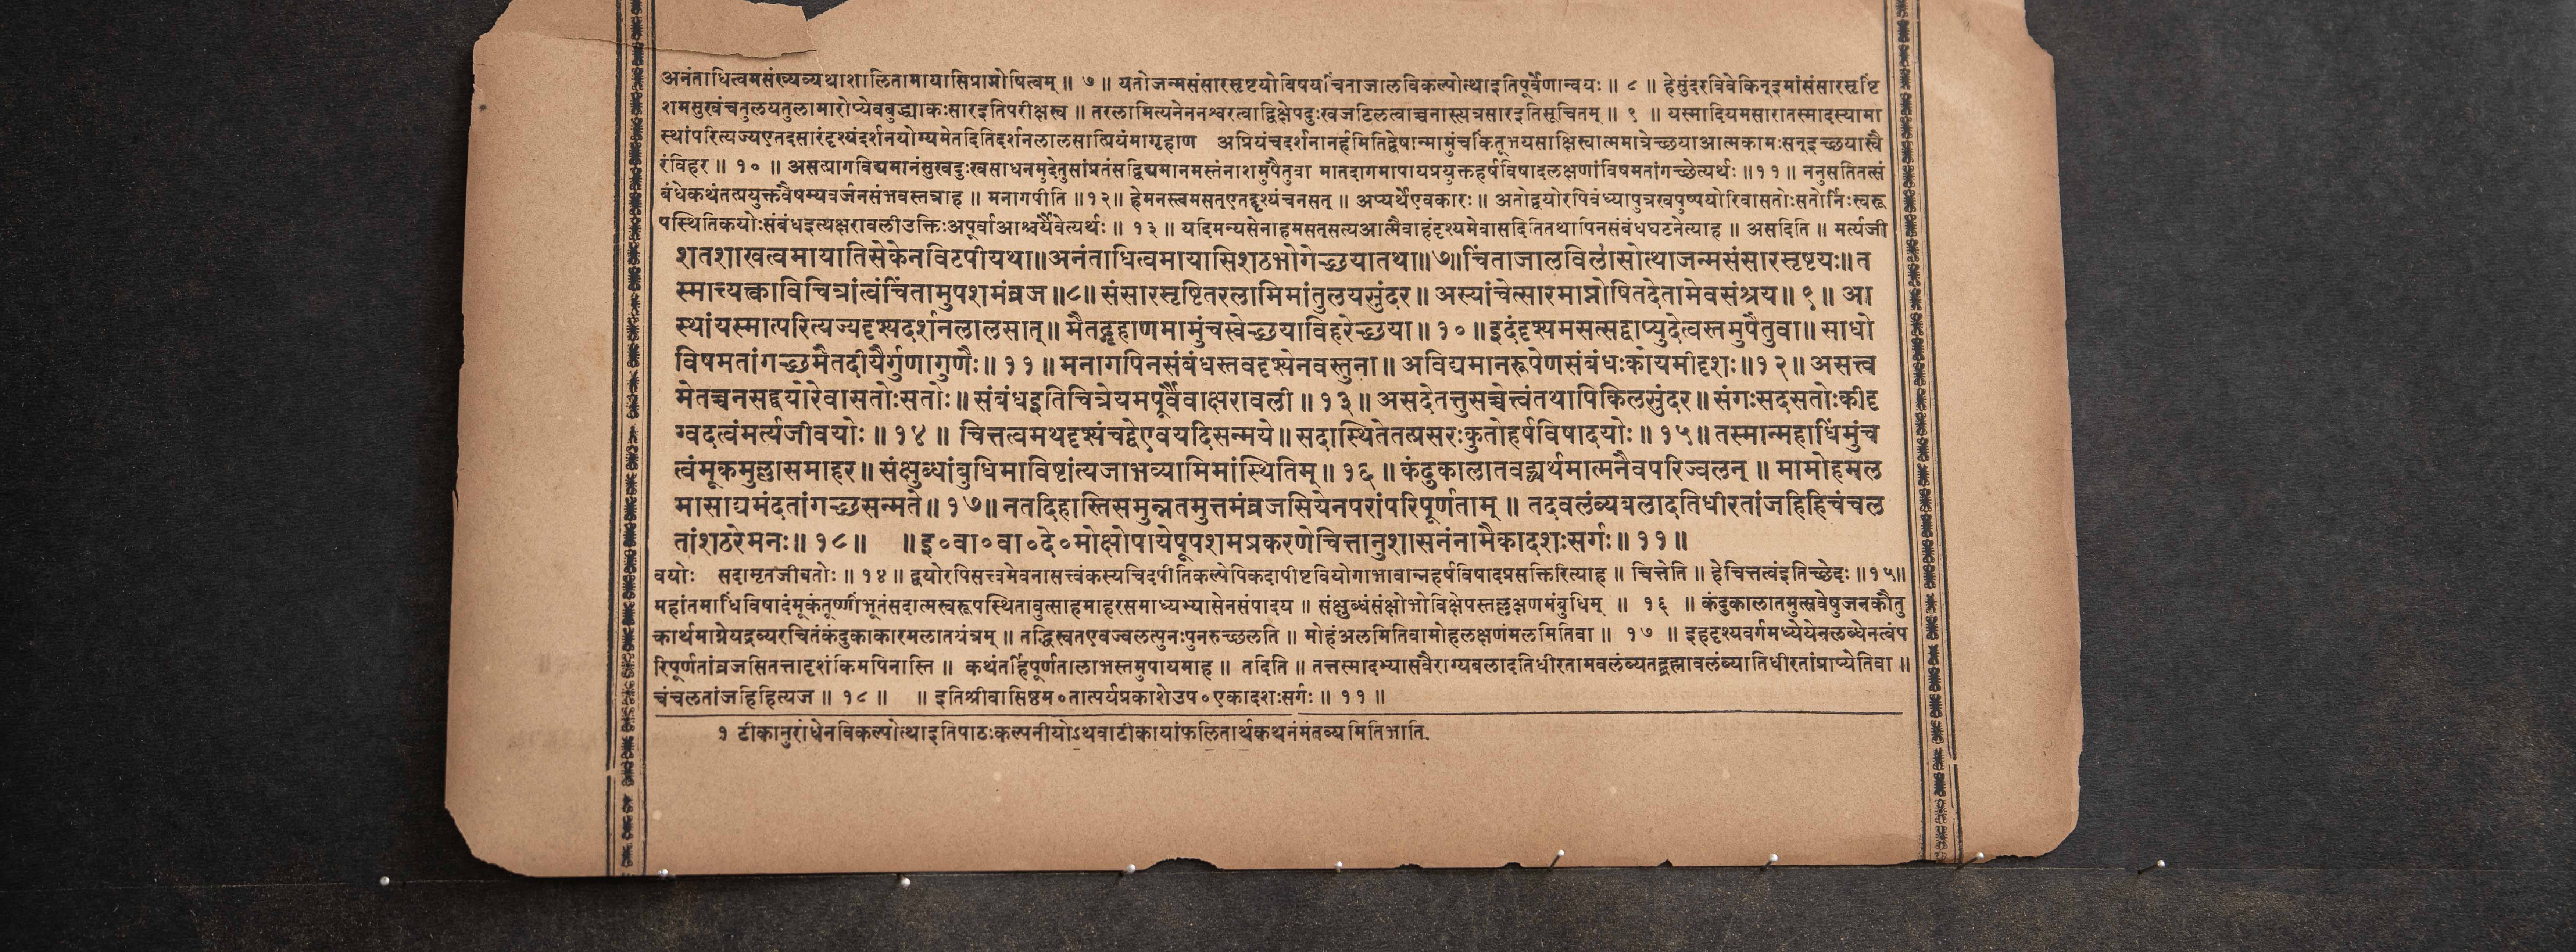 अनंताधित्वमसंख्यव्यथाशालितामायासिप्राप्नोषित्वम् ॥ ७ ॥ यतोजन्मसंसारसृष्टयोविषयचिंनाजालविकल्पोत्थाइतिपूर्वेणान्वयः ॥ ८ ॥ हेसुंदरविवेकिन्इमांसंसारसृष्टिं
शमसुखंचतुलयतुलामारोप्येवबुद्ध्याकःसारइतिपरीक्षस्व ॥ तरलामित्यनेननश्वरत्वाद्विक्षेपदुःखजटिलत्वाच्चनास्त्यत्रसारइतिसूचितम् ॥ ९ ॥ यस्मादियमसारातस्मादस्यामा
स्थांपरित्यज्यएतदसारंदृश्यंदर्शनयोग्यमेतदितिदर्शनलालसात्प्रियंमागृहाण अप्रियंचदर्शनानर्हमितिद्वेषान्मामुंचकिंतूभयसाक्षिस्वात्ममात्रेच्छयाआत्मकामःसन्इच्छयास्वै
रंविहर ॥ १० ॥ असत्प्रागविद्यमानंसुखदुःखसाधनमुदेतुसांप्रतंसद्विद्यमानमस्तंनाशमुपैतुवा मातदागमापायप्रयुक्तहर्षविषादलक्षणांविषमतांगच्छेत्यर्थः ॥११॥ ननुसतितत्सं
बंधेकथंतत्प्रयुक्तवैषम्यवर्जनसंभवस्तत्राह ॥ मनागपीति ॥१२॥ हेमनस्त्वमसत्एतद्दृश्यंचनसत् ॥ अप्यर्थेएवकारः ॥ अतोद्वयोरपिवंध्यापुत्रखपुष्पयोरिवासतोःसतोर्निःस्वरू
पस्थितिकयोःसंबंधइत्यक्षरावलीउक्तिःअपूर्वाआश्चर्यैवेत्यर्थः ॥ १३ ॥ यदिमन्यसेनाहमसत्सत्यआत्मैवाहंदृश्यमेवासदितितथापिनसंबंधघटनेत्याह ॥ असदिति ॥ मर्त्यजी
शतशाखत्वमायातिसेकेनविटपीयथा॥अनंताधित्वमायासिशठभोगेच्छयातथा॥७॥चिंताजालविलासोत्थाजन्मसंसारसृष्टयः॥त
स्मात्त्यक्त्वाविचित्रांत्वंचिंतामुपशमंव्रज॥८॥ संसारसृष्टितरलामिमांतुलयसुंदर॥ अस्यांचेत्सारमाप्नोषितदेतामेवसंश्रय॥ ९॥ आ
स्थांयस्मात्परित्यज्यदृश्यदर्शनलालसात्॥ मैतद्गृहाणमामुंचस्वेच्छयाविहरेच्छया॥ १०॥ इदंदृश्यमसत्सद्वाप्युदेत्वस्तमुपैतुवा॥ साधो
विषमतांगच्छमैतदीयैर्गुणागुणैः॥ ११॥ मनागपिनसंबंधस्तवदृश्येनवस्तुना॥ अविद्यमानरूपेणसंबंधःकोयमीदृशः॥१२॥ असत्त्व
मेतच्चनसद्द्वयोरेवासतोःसतोः॥ संबंधइतिचित्रेयमपूर्वैवाक्षरावली॥ १३॥ असदेतत्तुसच्चेत्त्वंतथापिकिलसुंदर॥ संगःसदसतोःकीदृ
ग्वदत्वंमर्त्यजीवयोः॥ १४॥ चित्तत्वमथदृश्यंचद्वेएवयदिसन्मये॥ सदास्थितेतत्प्रसरःकुतोहर्षविषादयोः॥ १५॥ तस्मान्महाधिंमुंच
त्वंमूकमुल्लासमाहर॥ संक्षुब्धांबुधिमाविष्टांत्यजाभव्यामिमांस्थितिम्॥ १६॥ कंदुकालातवद्व्यर्थमात्मनैवपरिज्वलन्॥ मामोहमल
मासाद्यमंदतांगच्छसन्मते॥ १७॥ नतदिहास्तिसमुन्नतमुत्तमंव्रजसियेनपरांपरिपूर्णताम्॥ तदवलंब्यबलादतिधीरतांजहिहिचंचल
तांशठरेमनः॥ १८॥ ॥ इ०वा०वा०दे०मोक्षोपायेषूपशमप्रकरणेचित्तानुशासनंनामैकादशःसर्गः॥ ११॥
वयोः सदामृतजीवतोः ॥ १४ ॥ द्वयोरपिसत्त्वमेवनासत्त्वंकस्यचिदपीतिकल्पेपिकदापीष्टवियोगाभावान्नहर्षविषादप्रसक्तिरित्याह ॥ चित्तेति ॥ हेचित्तत्वंइतिच्छेदः ॥१५॥
महांतमाधिंविषादंमूकंतूष्णींभूतंसदात्मस्वरूपस्थितावुत्साहमाहरसमाध्यभ्यासेनसंपादय ॥ संक्षुब्धंसंक्षोभोविक्षेपस्तल्लक्षणमंबुधिम् ॥ १६ ॥ कंदुकालातमुत्सवेषुजनकौतु
कार्थमाग्नेयद्रव्यरचितंकंदुकाकारमलातयंत्रम् ॥ तद्धिस्वतएवज्वलत्पुनःपुनरुच्छलति ॥ मोहंअलमितिवामोहलक्षणंमलमितिवा ॥ १७ ॥ इहदृश्यवर्गमध्येयेनलब्धेनत्वंप
रिपूर्णतांव्रजसितत्तादृशंकिमपिनास्ति ॥ कथंतर्हिपूर्णतालाभस्तमुपायमाह ॥ तदिति ॥ तत्तस्मादभ्यासवैराग्यबलादतिधीरतामवलंब्यतद्ब्रह्मावलंब्यातिधीरतांप्राप्येतिवा ॥
चंचलतांजहिहित्यज ॥ १८ ॥ ॥ इतिश्रीवासिष्ठम०तात्पर्यप्रकाशेउप०एकादशःसर्गः ॥ ११ ॥
१ टीकानुरोधेनविकल्पोत्थाइतिपाठःकल्पनीयोऽथवाटीकायांफलितार्थकथनंमंतव्यमितिभाति.